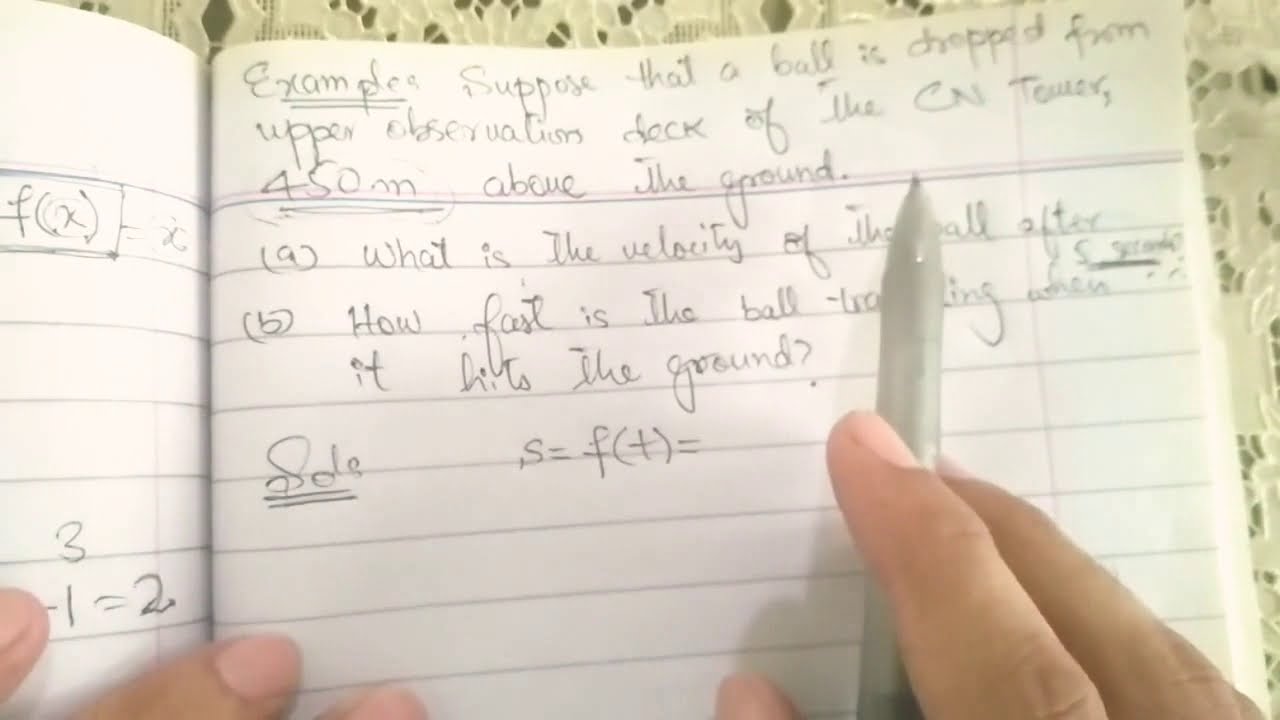 Example: Suppose that a ball is dropped from
upper observation deck of the CN Tower,
450m above the ground.
(a) What is the velocity of the ball after
5 seconds?
(b) How fast is the ball when
it hits the ground?
Sol:
s= f(t)=
f(x) = x
3
-1=2